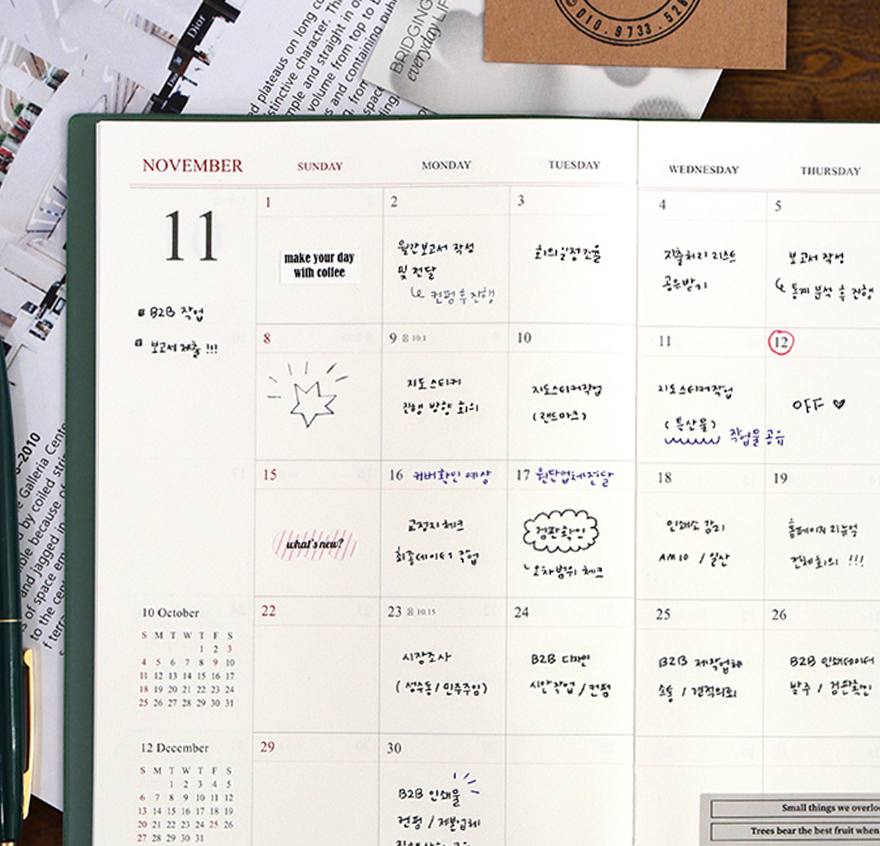 Dior
Dior
BRIDGING
everyday LIFE
010.9733.526
d plateaus on long co
stinctive character. The
mple and straight in o
volume from top to b
s and containing pub
from
space
NOVEMBER
SUNDAY
MONDAY
TUESDAY
WEDNESDAY
THURSDAY
11
B2B 작업
보고서 제출 !!!
1
make your day
with coffee
2
월간보고서 작성
및 전달
↳ 컨펌 후 진행
3
회의일정조율
4
지출처리 리스트
공유받기
5
보고서 작성
↳ 통계 분석 후 진행
8
9 음 10.1
지도스티커
진행 방향 회의
10
지도스티커작업
(랜드마크)
11
지도스티커작업
(특산물)
작업물공유
12
OFF ♥
15
what's new?
16 커버확인 예상
교정지 체크
최종데이터 작업
17 원단업체전달
검판확인
오차범위 체크
18
인쇄소 감리
AM10 / 일산
19
홈페이지 리뉴얼
전체회의 !!!
22
23 음 10.15
시장조사
(성수동/
24
B2B 디자인
시안작업 / 컨펌
25
B2B 제작업체
소통 / 견적의뢰
26
B2B 인쇄데이터
발주 / 검판확인
29
30
B2B 인쇄물
컨펌 / 제본업체
10 October
S M T W T F S
1 2 3
4 5 6 7 8 9 10
11 12 13 14 15 16 17
18 19 20 21 22 23 24
25 26 27 28 29 30 31
12 December
S M T W T F S
1 2 3 4 5
6 7 8 9 10 11 12
13 14 15 16 17 18 19
20 21 22 23 24 25 26
27 28 29 30 31
-2010
e Galleria Cente
d by coiled stri
ble because of
and jagged in
s of space em
to the cen
f terra
Small things we overloo
Trees bear the best fruit when